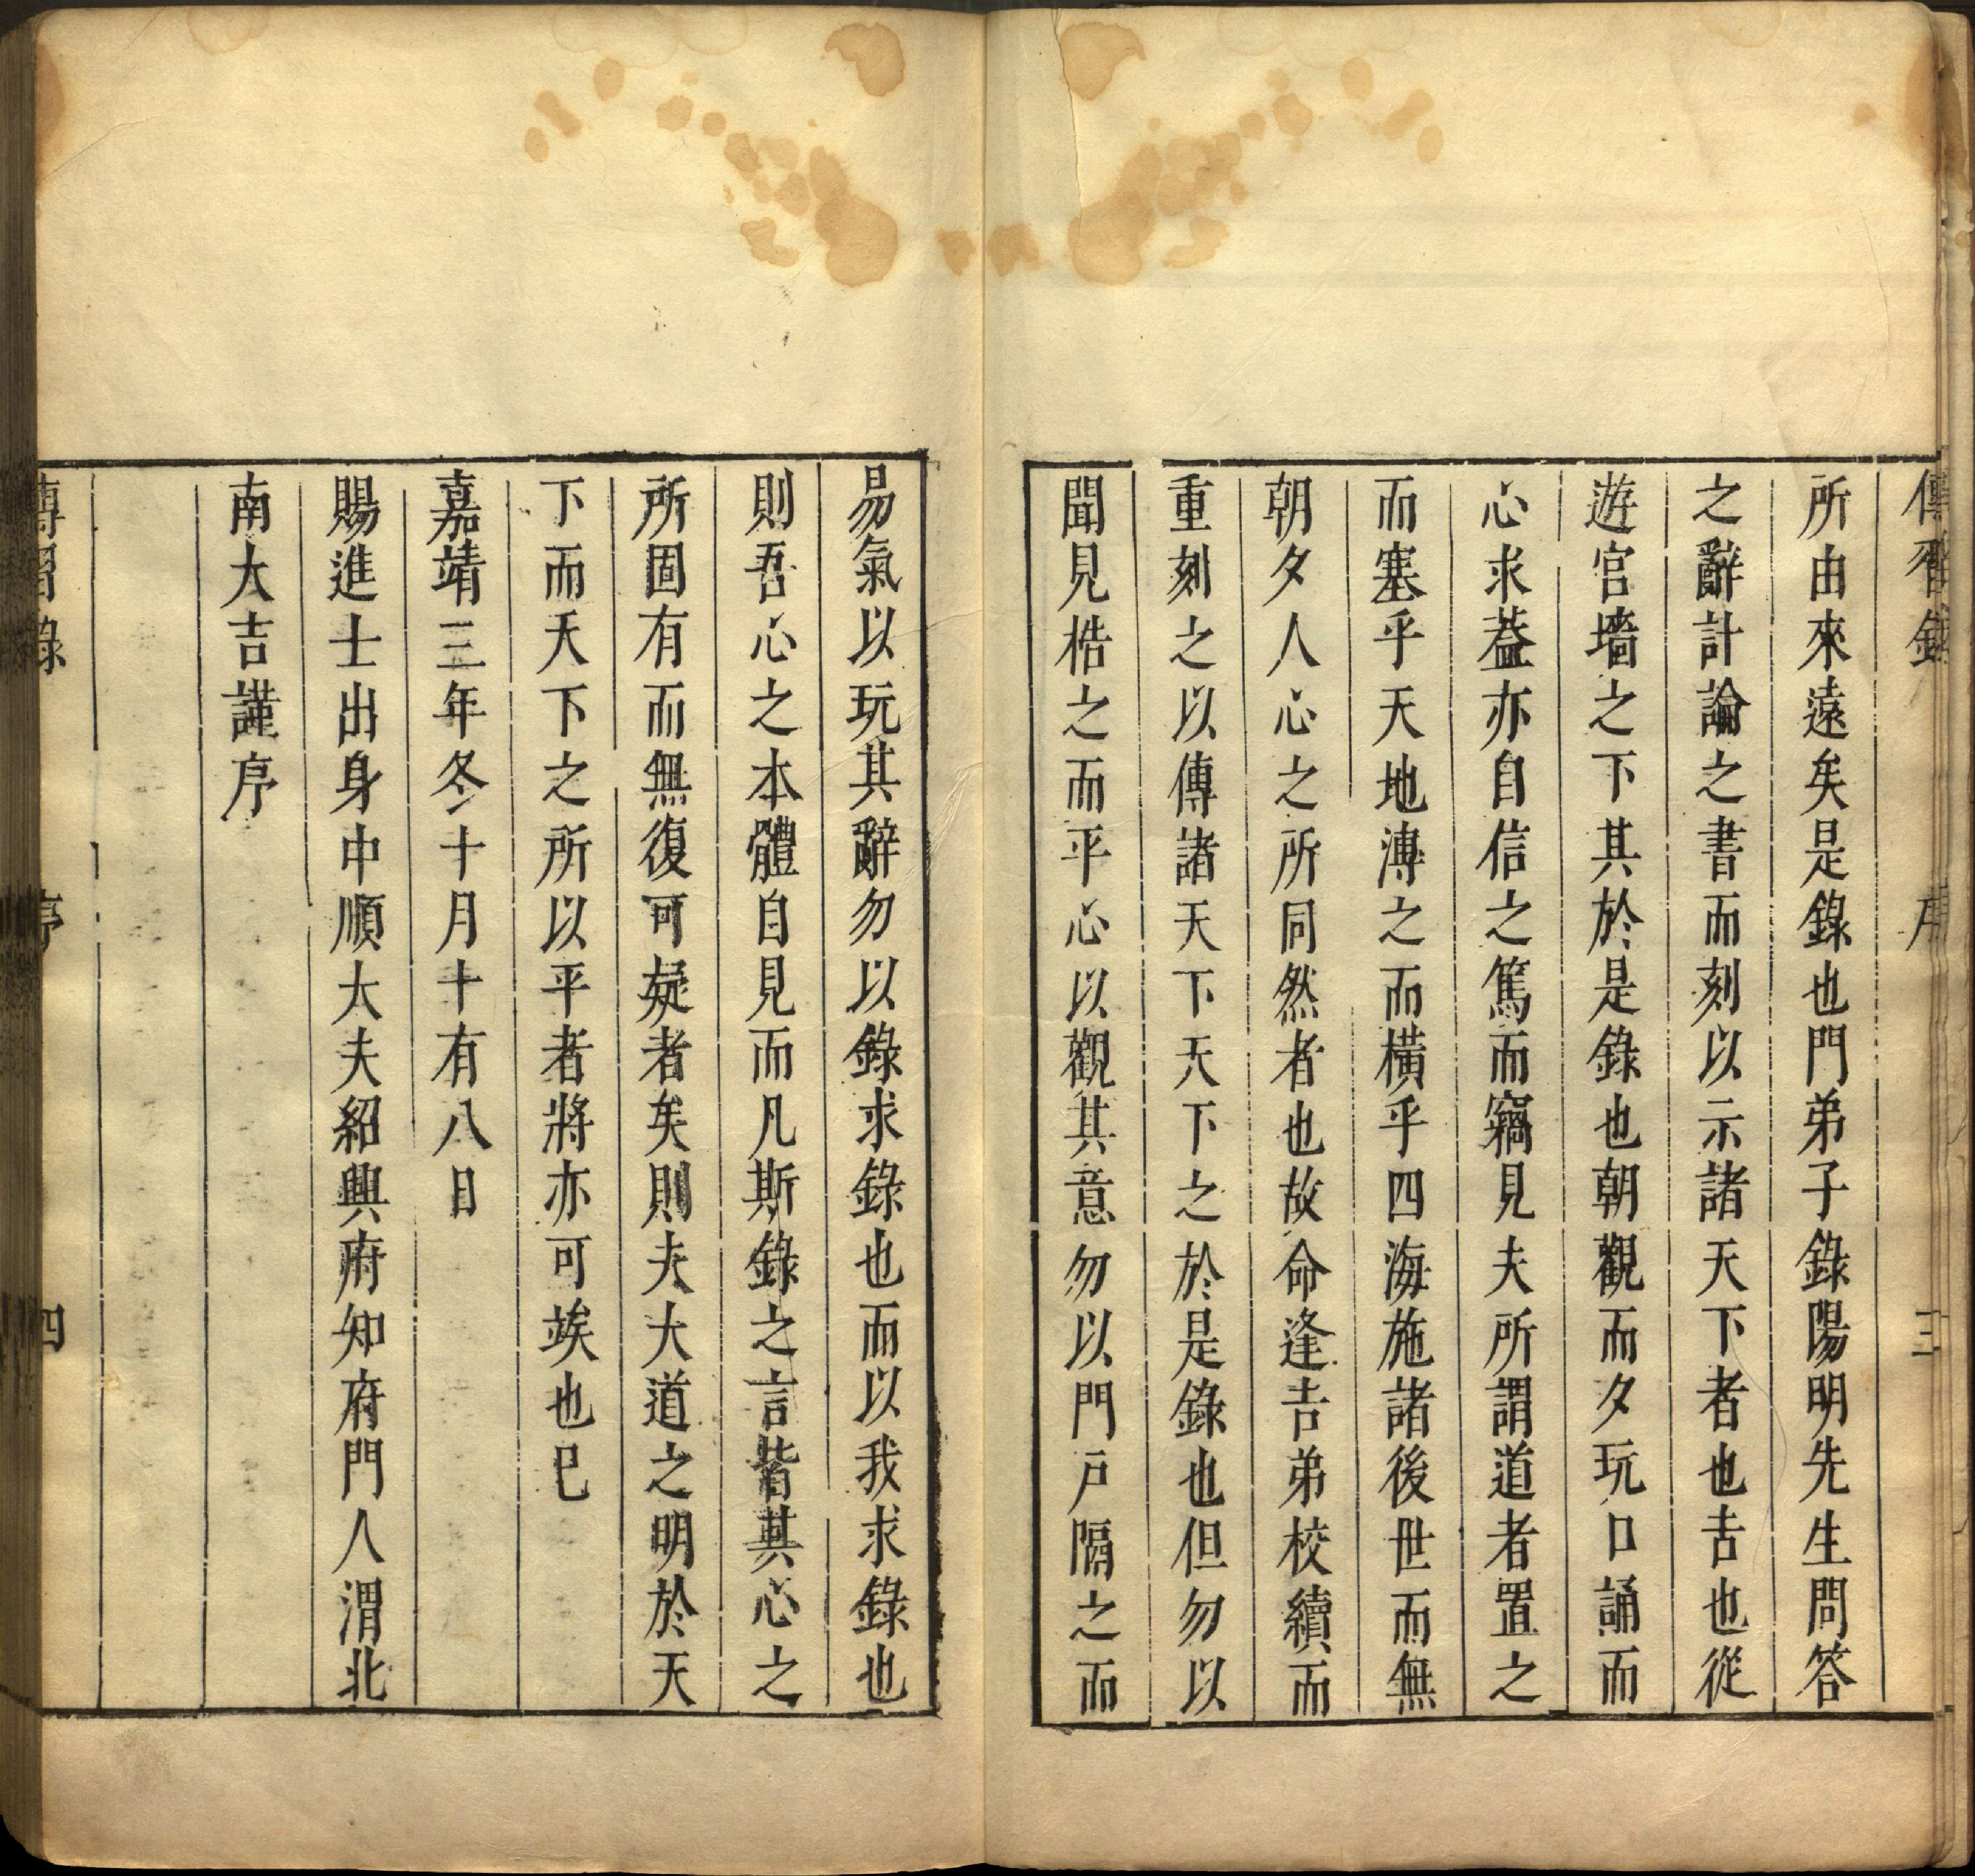 傳習錄 序 三
所由來遠矣是錄也門弟子錄陽明先生問答
之辭計論之書而刻以示諸天下者也吉也從
遊宮墻之下其於是錄也朝觀而夕玩口誦而
心求葢亦自信之篤而竊見夫所謂道者置之
而塞乎天地溥之而橫乎四海施諸後世而無
朝夕人心之所同然者也故命逢吉弟校續而
重刻之以傳諸天下天下之於是錄也但勿以
聞見梏之而平心以觀其意勿以門戶隔之而
易氣以玩其辭勿以錄求錄也而以我求錄也
則吾心之本體自見而凡斯錄之言皆其心之
所固有而無復可疑者矣則夫大道之明於天
下而天下之所以平者將亦可竢也巳
嘉靖三年冬十月十有八日
賜進士出身中順大夫紹興府知府門人渭北
南大吉謹序
傳習錄 序 四